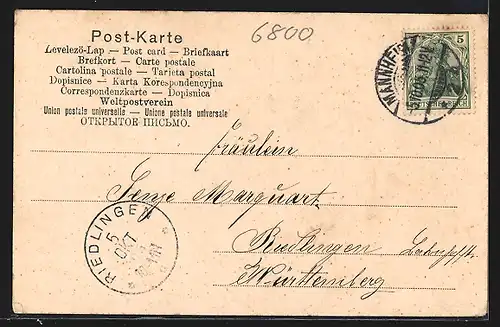 6800
Post-Karte
Levelező-Lap — Post card — Briefkaart
Brefkort — Carte postale
Cartolina postale — Tarjeta postal
Dopisnice — Karta Korespondencyjna
Correspondenzkarte — Dopisnica
Weltpostverein
Union postale universelle — Unione postale universale
ОТКРЫТОЕ ПИСЬМО.
MANNHEIM
5
DEUTSCHES REICH
Fräulein
Marquart
Riedlingen
Württemberg
RIEDLINGEN
5
OKT